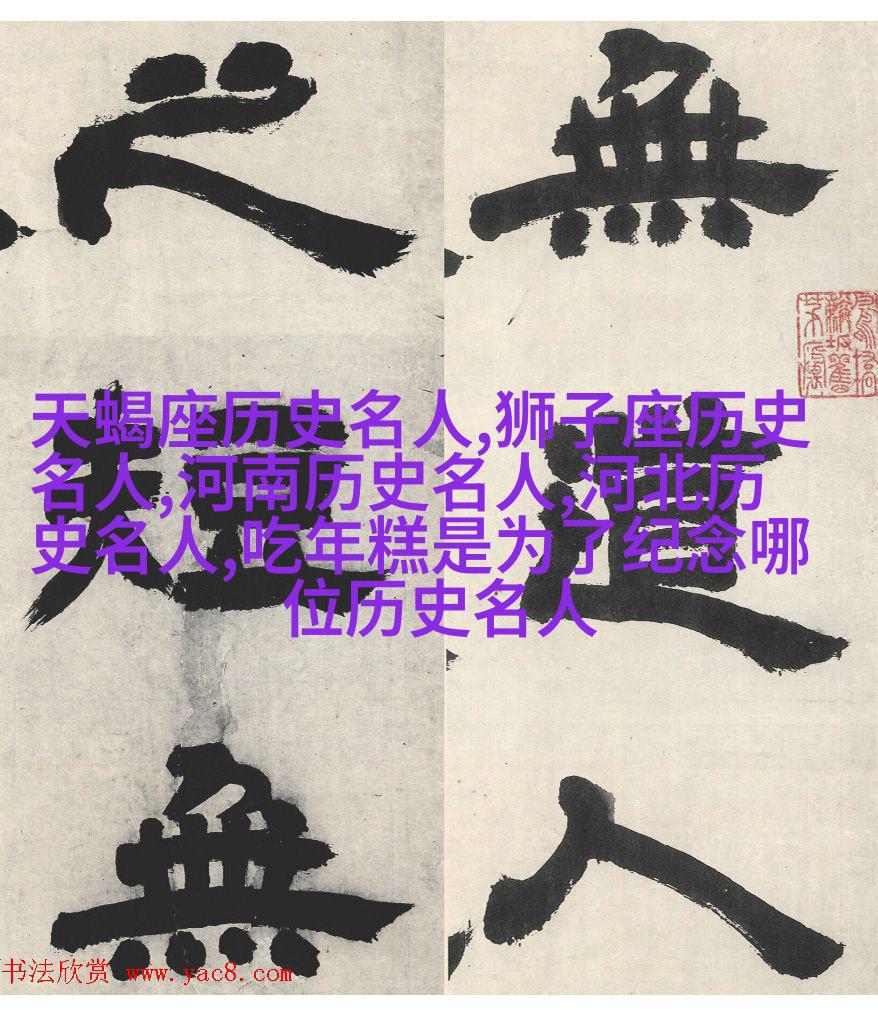 無道人
之短無
天蝎座历史名人,狮子座历史
名人,河南历史名人,河北历
史名人,吃年糕是为了纪念哪
位历史名人
书法欣赏 www.yac8.com